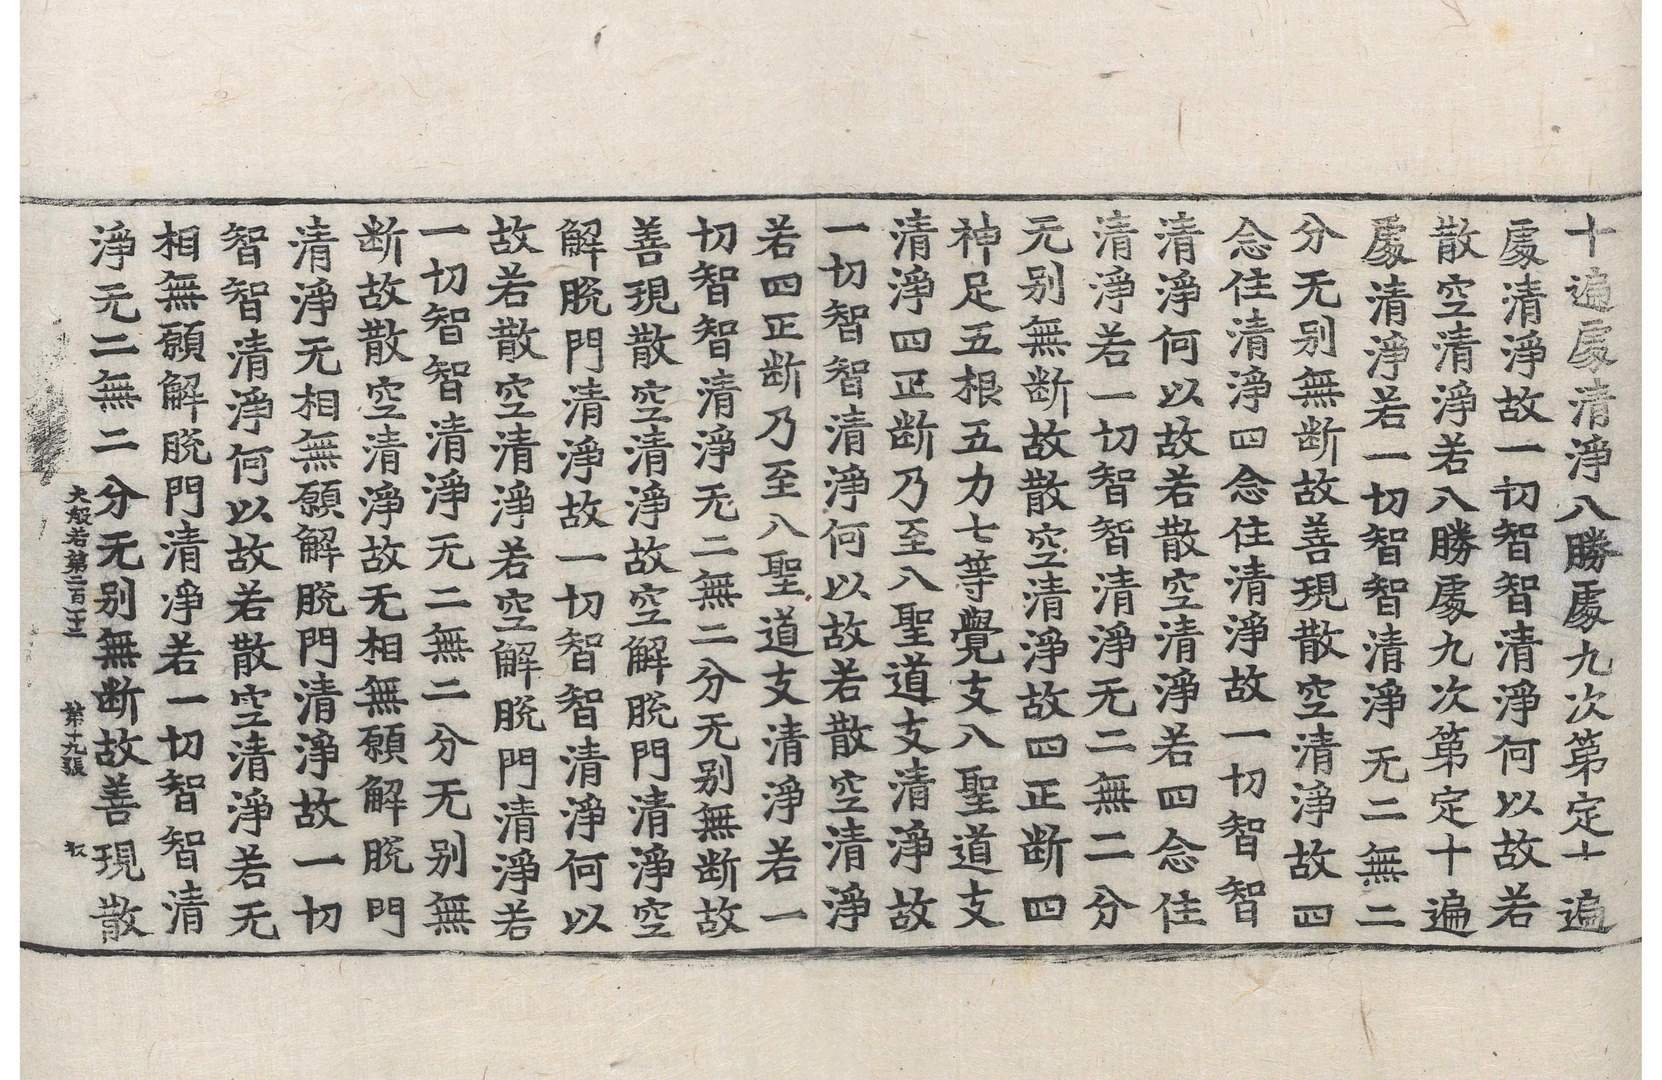 十遍處清淨八勝處九次第定十遍
處清淨故一切智智清淨何以故若
散空清淨若八勝處九次第定十遍
處清淨若一切智智清淨无二無二
分无别無断故善現散空清淨故四
念住清淨四念住清淨故一切智智
清淨何以故若散空清淨若四念住
清淨若一切智智清淨无二無二分
无别無断故散空清淨故四正断四
神足五根五力七等覺支八聖道支
清淨四正断乃至八聖道支清淨故
一切智智清淨何以故若散空清淨
若四正断乃至八聖道支清淨若一
切智智清淨无二無二分无别無断故
善現散空清淨故空解脱門清淨空
解脱門清淨故一切智智清淨何以
故若散空清淨若空解脱門清淨若
一切智智清淨无二無二分无别無
断故散空清淨故无相無願解脱門
清淨无相無願解脱門清淨故一切
智智清淨何以故若散空清淨若无
相無願解脱門清淨若一切智智清
淨无二無二分无别無断故善現散
大般若第二百二十二　第十九張